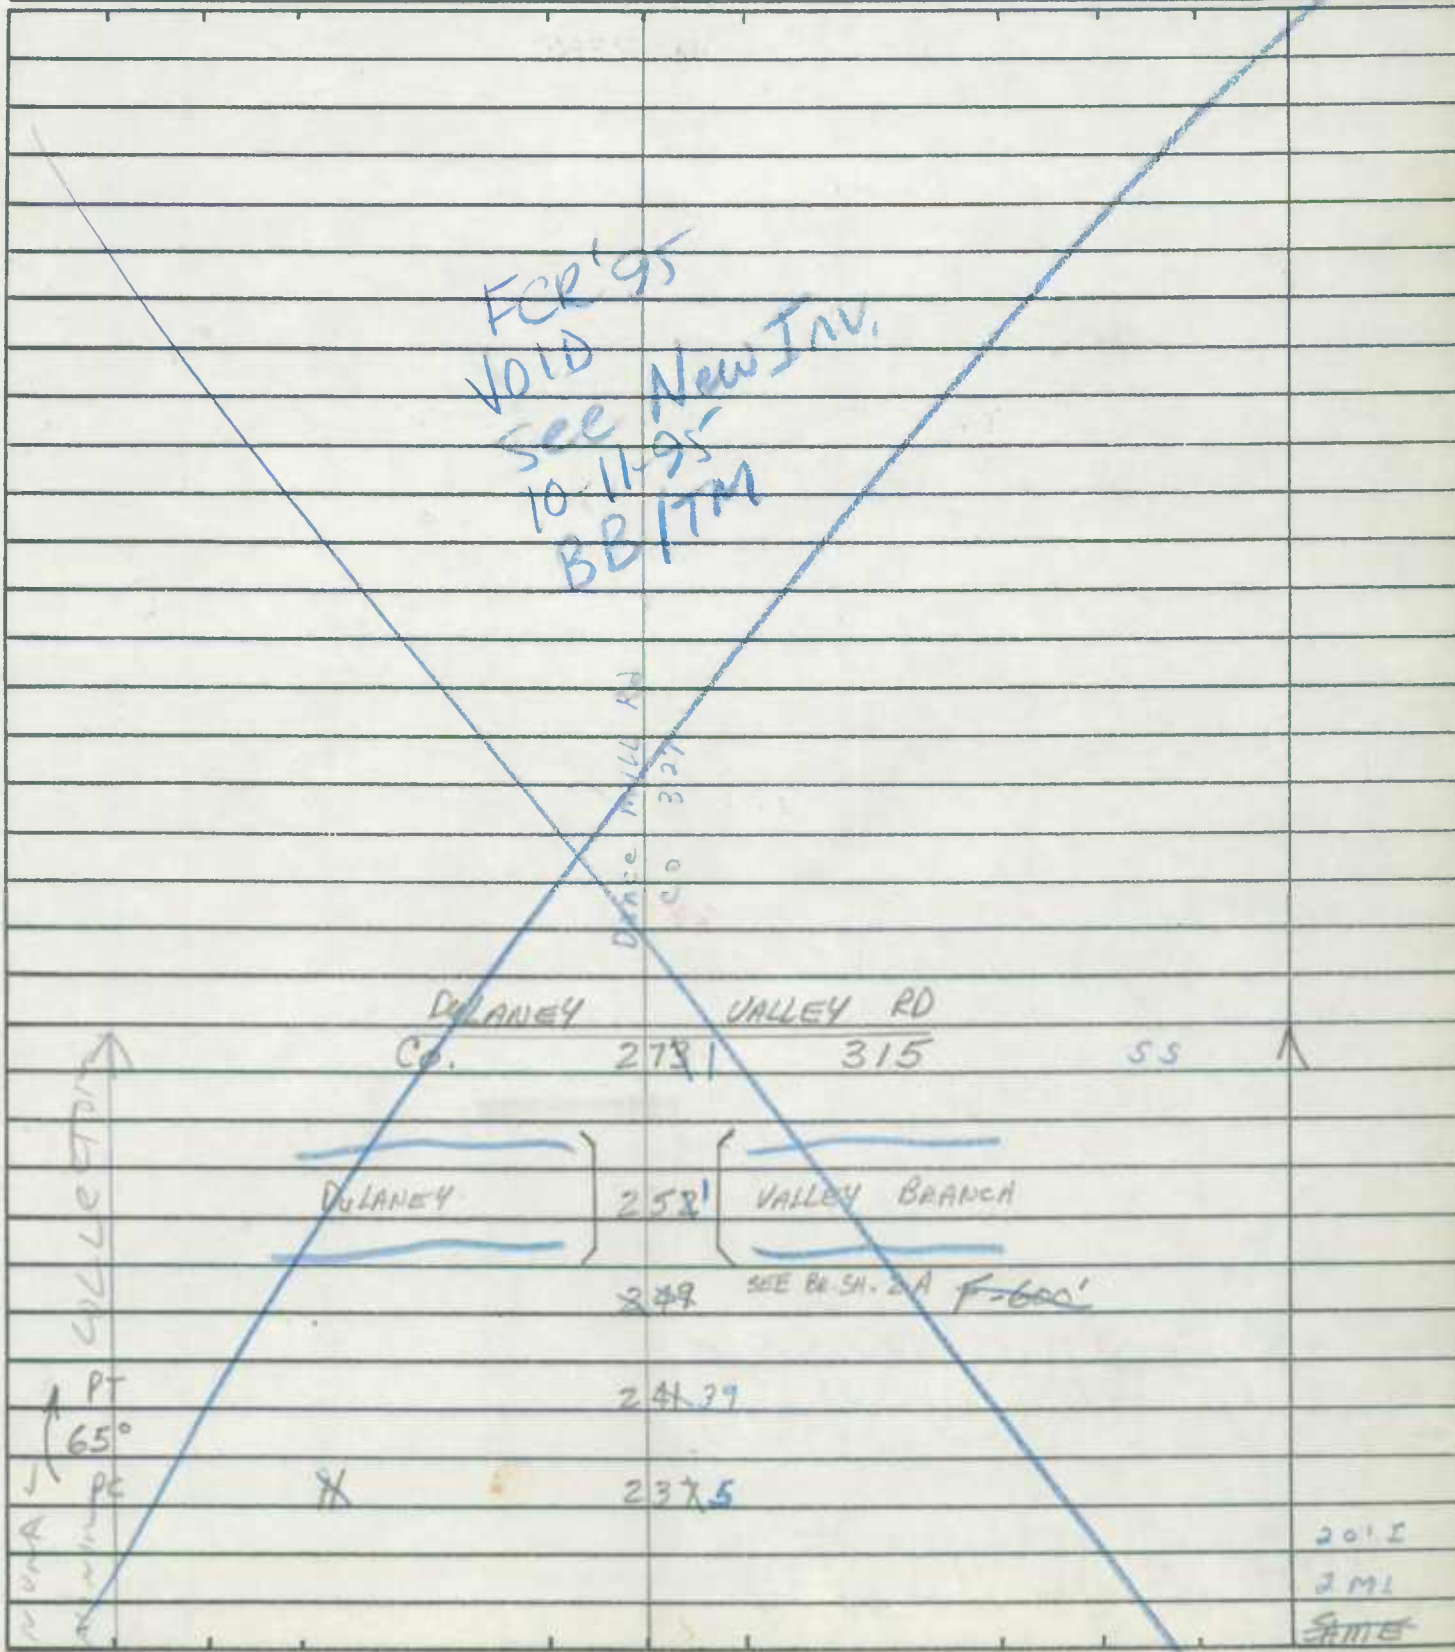 FCR '95
VOID
See New Inv.
10-11-95
BB/TM
Dance Mill Rd
Co 327
DULANEY VALLEY RD
Co. 2731 315 SS
DULANEY 2521 VALLEY BRANCH
249 SEE BR.SH. 2A F-600'
PT 24139
65°
PC 2375
20' I
2 ML
SAME